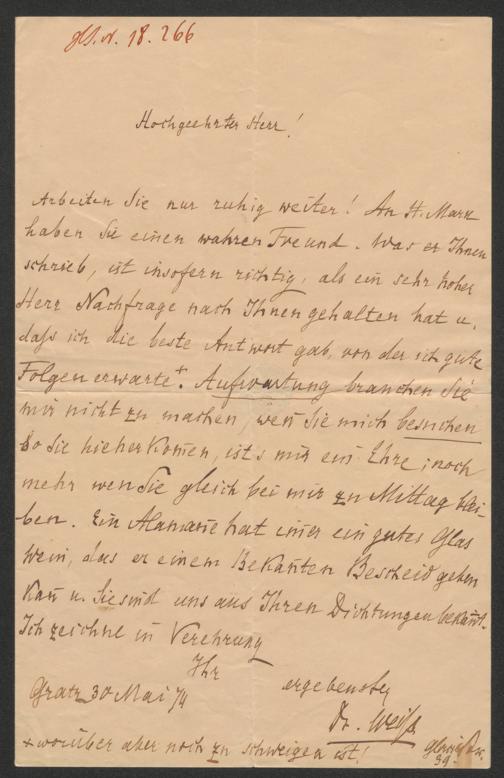 H.I.N. 18.266
Hochgeehrter Herr!
Arbeiten Sie nur ruhig weiter! An H. Marx
haben Sie einen wahren Freund. Was er Ihnen
schrieb, ist insofern richtig, als ein sehr hoher
Herr Nachfrage nach Ihnen gehalten hat u.
daß ich die beste Antwort gab, von der ich gute
Folgen erwarte+. Aufwartung brauchen Sie
mir nicht zu machen, weñ Sie mich besuchen
so Sie hieher kom̄en, ist's mir ein Ehre; noch
mehr weñ Sie gleich bei mir zu Mittag blei-
ben. Ein Alamane hat im̄er ein gutes Glas
Wein, das er einem Bekañten Bescheid geben
kañ u. Sie sind uns aus Ihren Dichtungen bekañt.
Ich zeichne in Verehrung
Ihr
ergebenster
Gratz 30 Mai 74
Dr. Weiß.
+ worüber aber noch zu schweigen ist!
39.